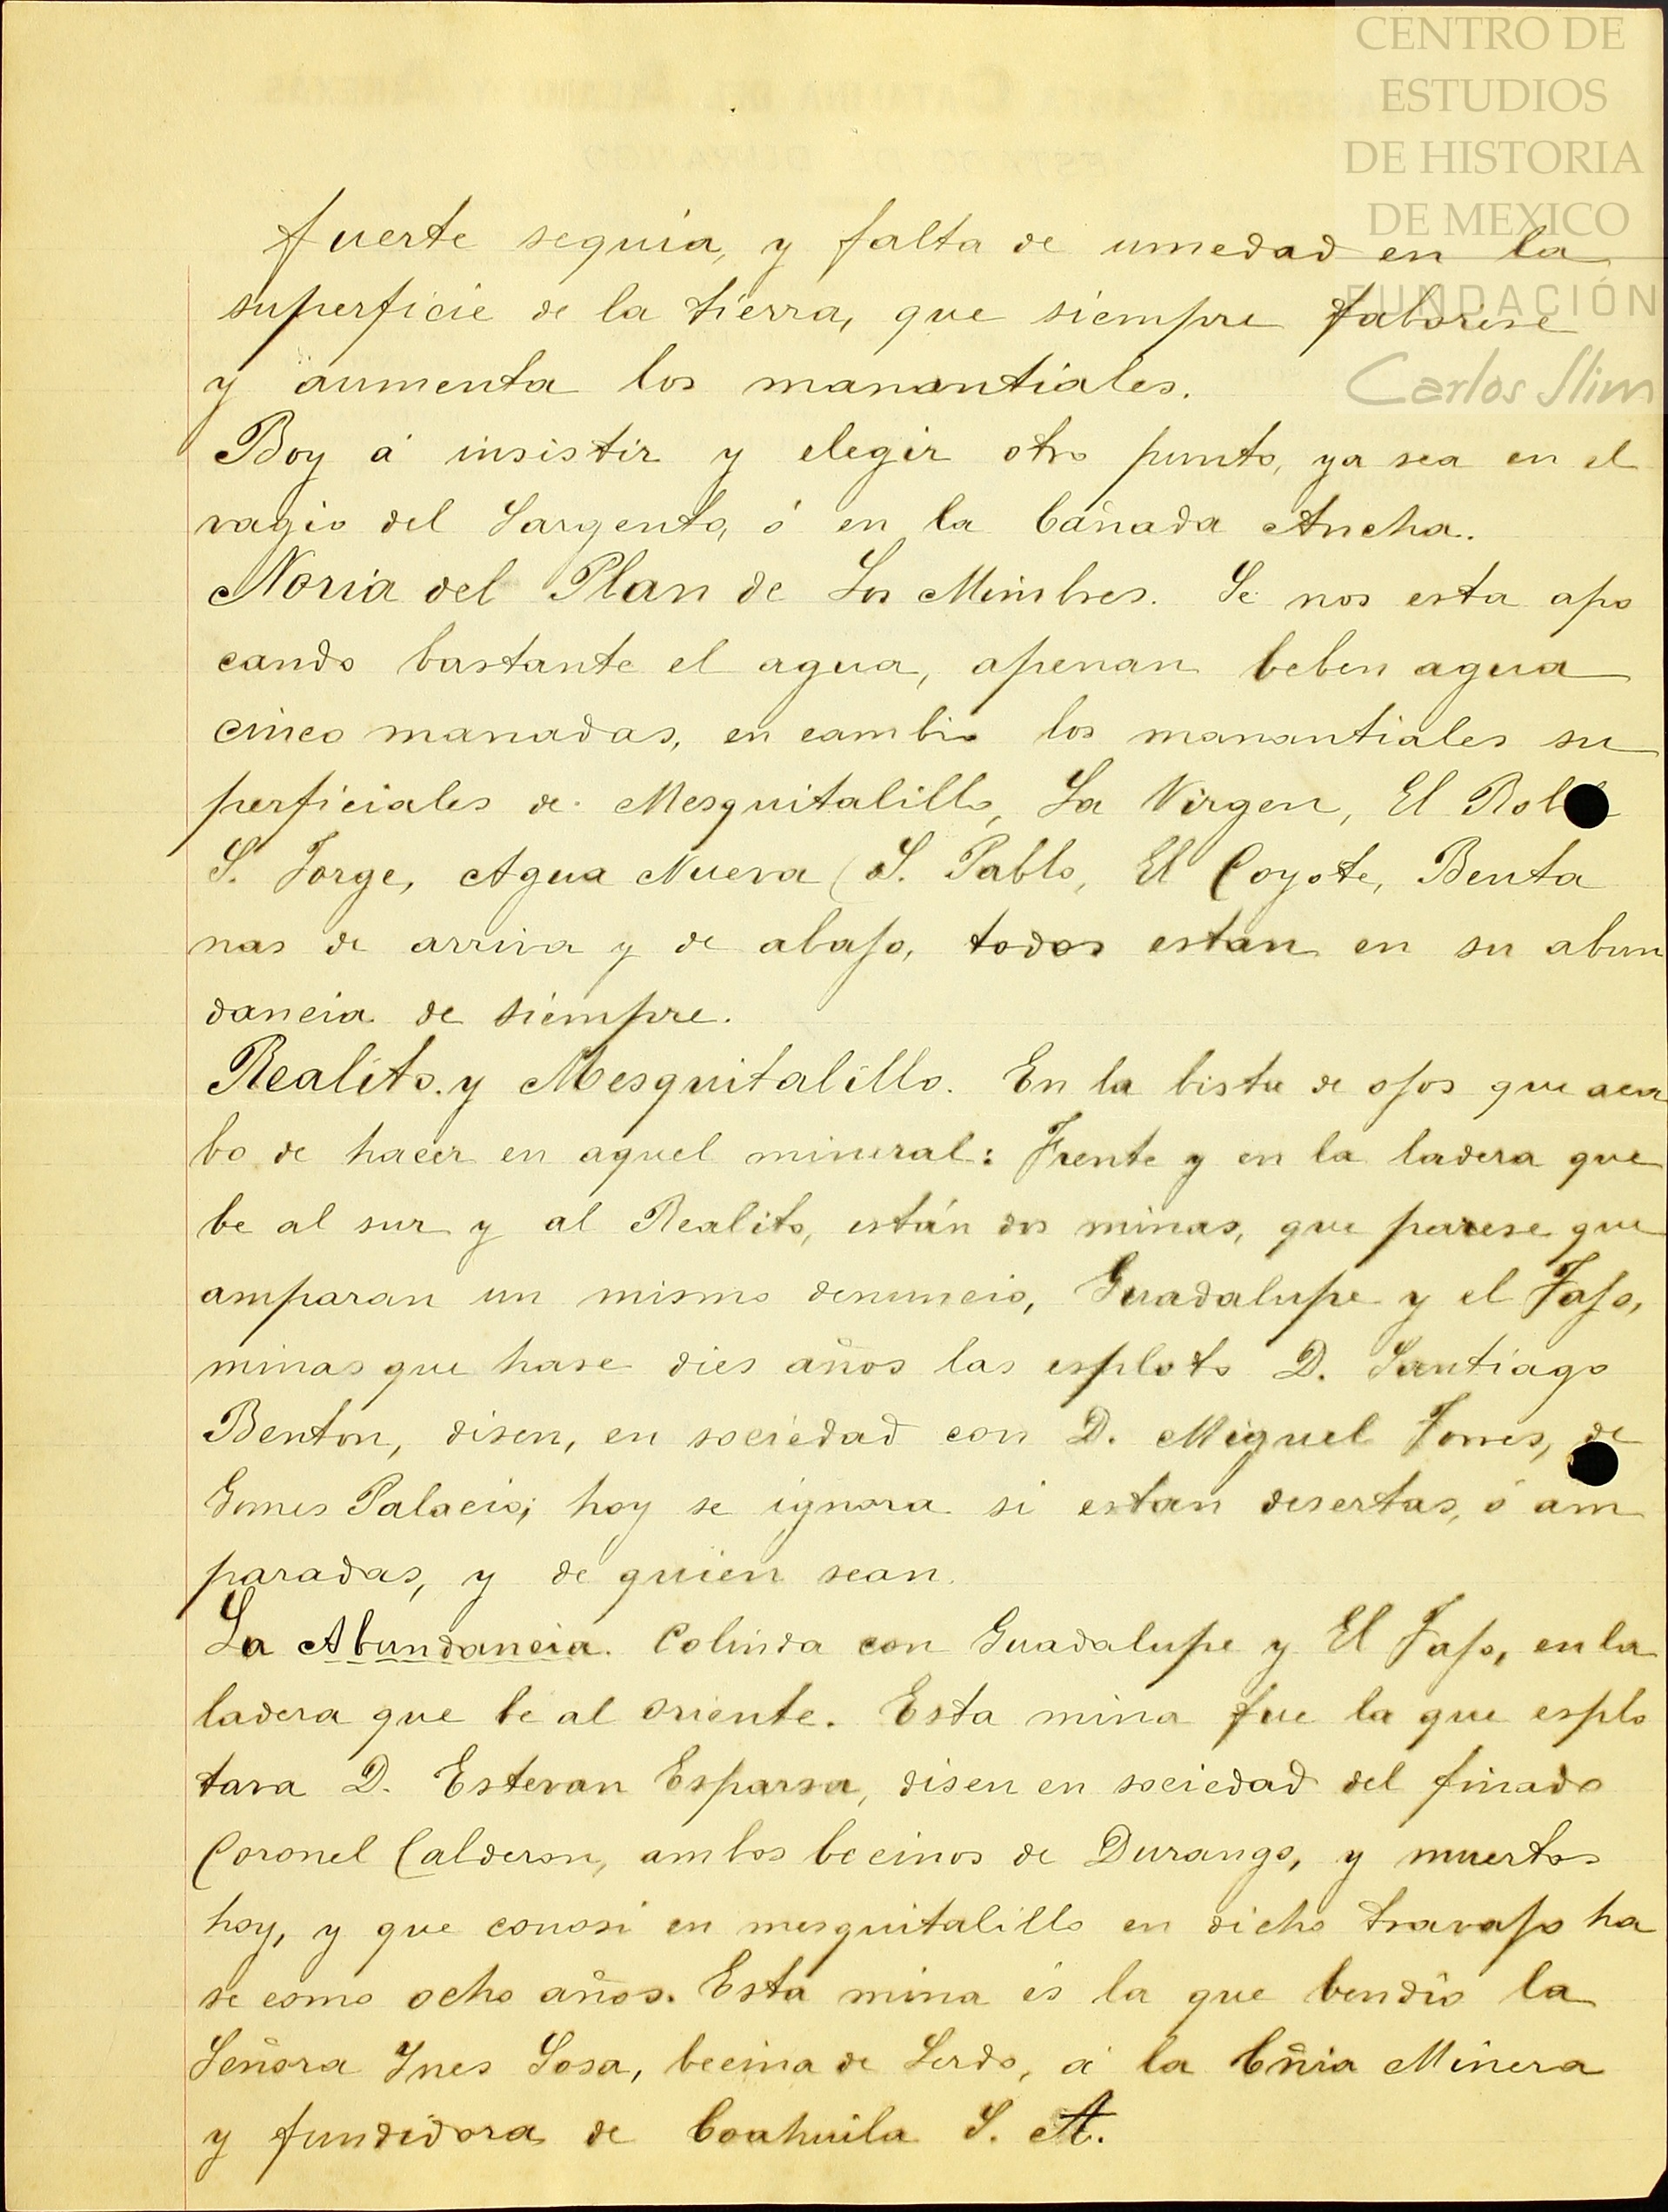 CENTRO DE
ESTUDIOS
DE HISTORIA
DE MEXICO
FUNDACIÓN
Carlos Slim
fuerte sequia, y falta de umedad en la
superficie de la tierra, que siempre faborese
y aumenta los manantiales.
Boy á insistir y elegir otro punto, ya sea en el
vagio del Sargento, ó en la Cañada Ancha.
Noria del Plan de Los Mimbres. Se nos esta apo
cando bastante el agua, apenan beben agua
cinco manadas, en cambio los manantiales su
perficiales de Mesquitalillo, La Virgen, El Roble
S. Jorge, Agua Nueva (S. Pablo, El Coyote, Benta
nas de arriva y de abajo, todos estan en su abun
dancia de siempre.
Realito y Mesquitalillo. En la bista de ojos que aca
bo de hacer en aquel mineral: Frente y en la ladera que
be al sur y al Realito, están dos minas, que parese que
amparan un mismo denuncio, Guadalupe y el Tajo,
minas que hase dies años las esploto D. Santiago
Benton, disen, en sociedad con D. Miguel Torres, de
Gomes Palacio; hoy se ignora si estan desertas, ó am
paradas, y de quien sean.
La Abundancia. Colinda con Guadalupe y El Tajo, en la
ladera que be al oriente. Esta mina fue la que esplo
tara D. Estevan Esparsa, disen en sociedad del finado
Coronel Calderon, ambos becinos de Durango, y muertos
hoy, y que conosi en mesquitalillo en dicho travajo ha
se como ocho años. Esta mina és la que bendio la
Señora Ynes Sosa, becina de Lerdo, á la Cñia Minera
y fundidora de Coahuila S. A.